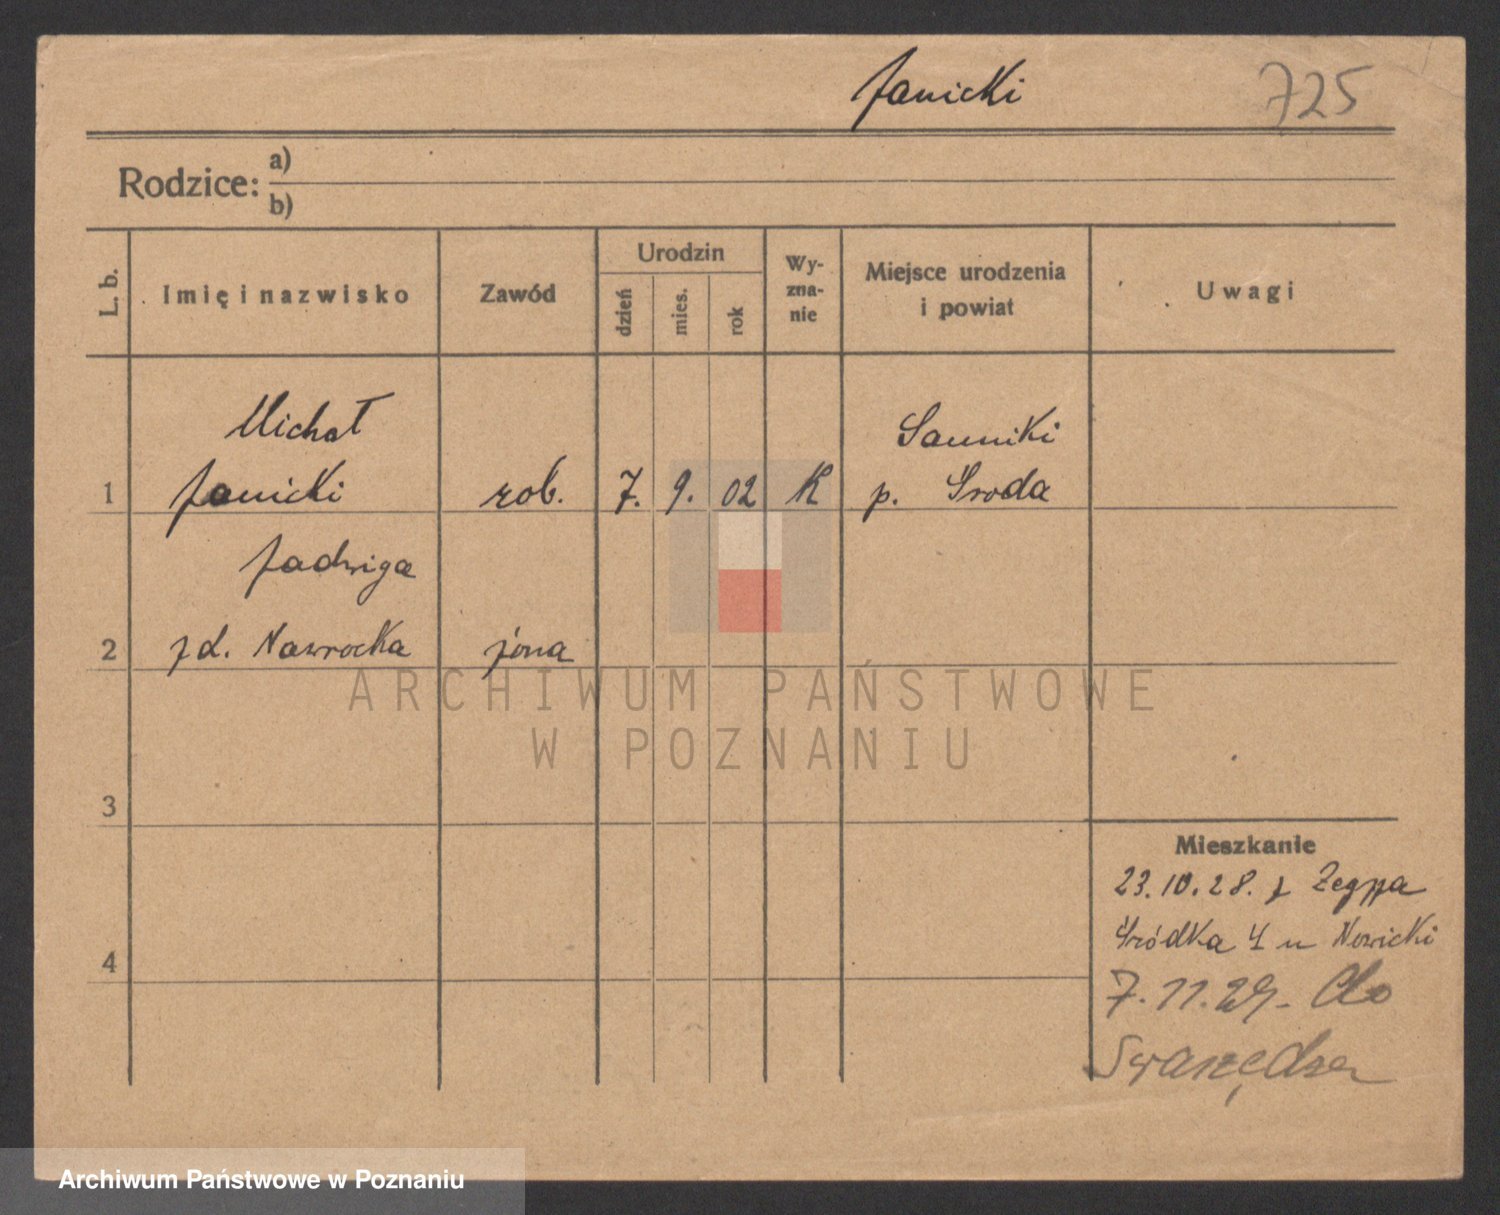 Janicki 725
Rodzice: a)
b)
L. b. Imię i nazwisko Zawód Urodzin dzień mies. rok Wy-zna-nie Miejsce urodzenia i powiat Uwagi
Michał Sanniki
1 Janicki rob. 7. 9. 02 K p. Sroda
Jadwiga
2 zd. Nawrocka żona
ARCHIWUM PAŃSTWOWE
W POZNANIU
3
Mieszkanie
23.10.28. z Zegrza
Śródka 4 u Nowicki
4
7.11.29. do
Swarzędza
Archiwum Państwowe w Poznaniu